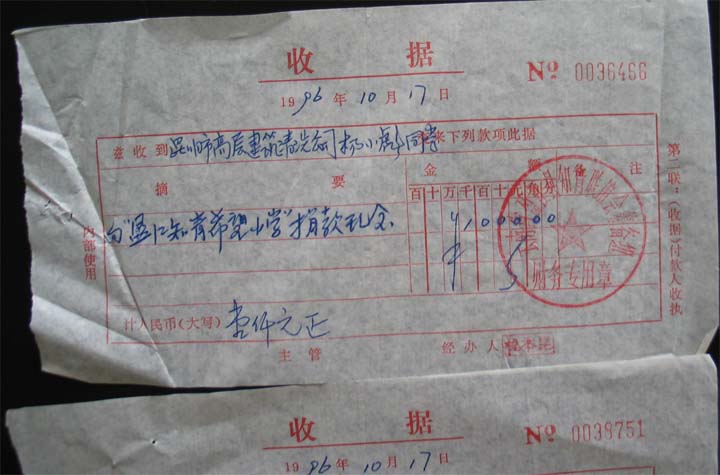 收 据
№ 0036466
1996年10月17日
兹收到昆明市高层建筑 公司 杨小彪同学 来下列款项此据
摘 要
金 额
备 注
百十万千百十元角分
向"盈江知青希望小学"捐款现金
¥100000
财务专用章
计人民币(大写) 壹仟元正
主管
经办人
内部使用
第二联:(收据)付款人收执
收 据
№ 0038751
1996年10月17日